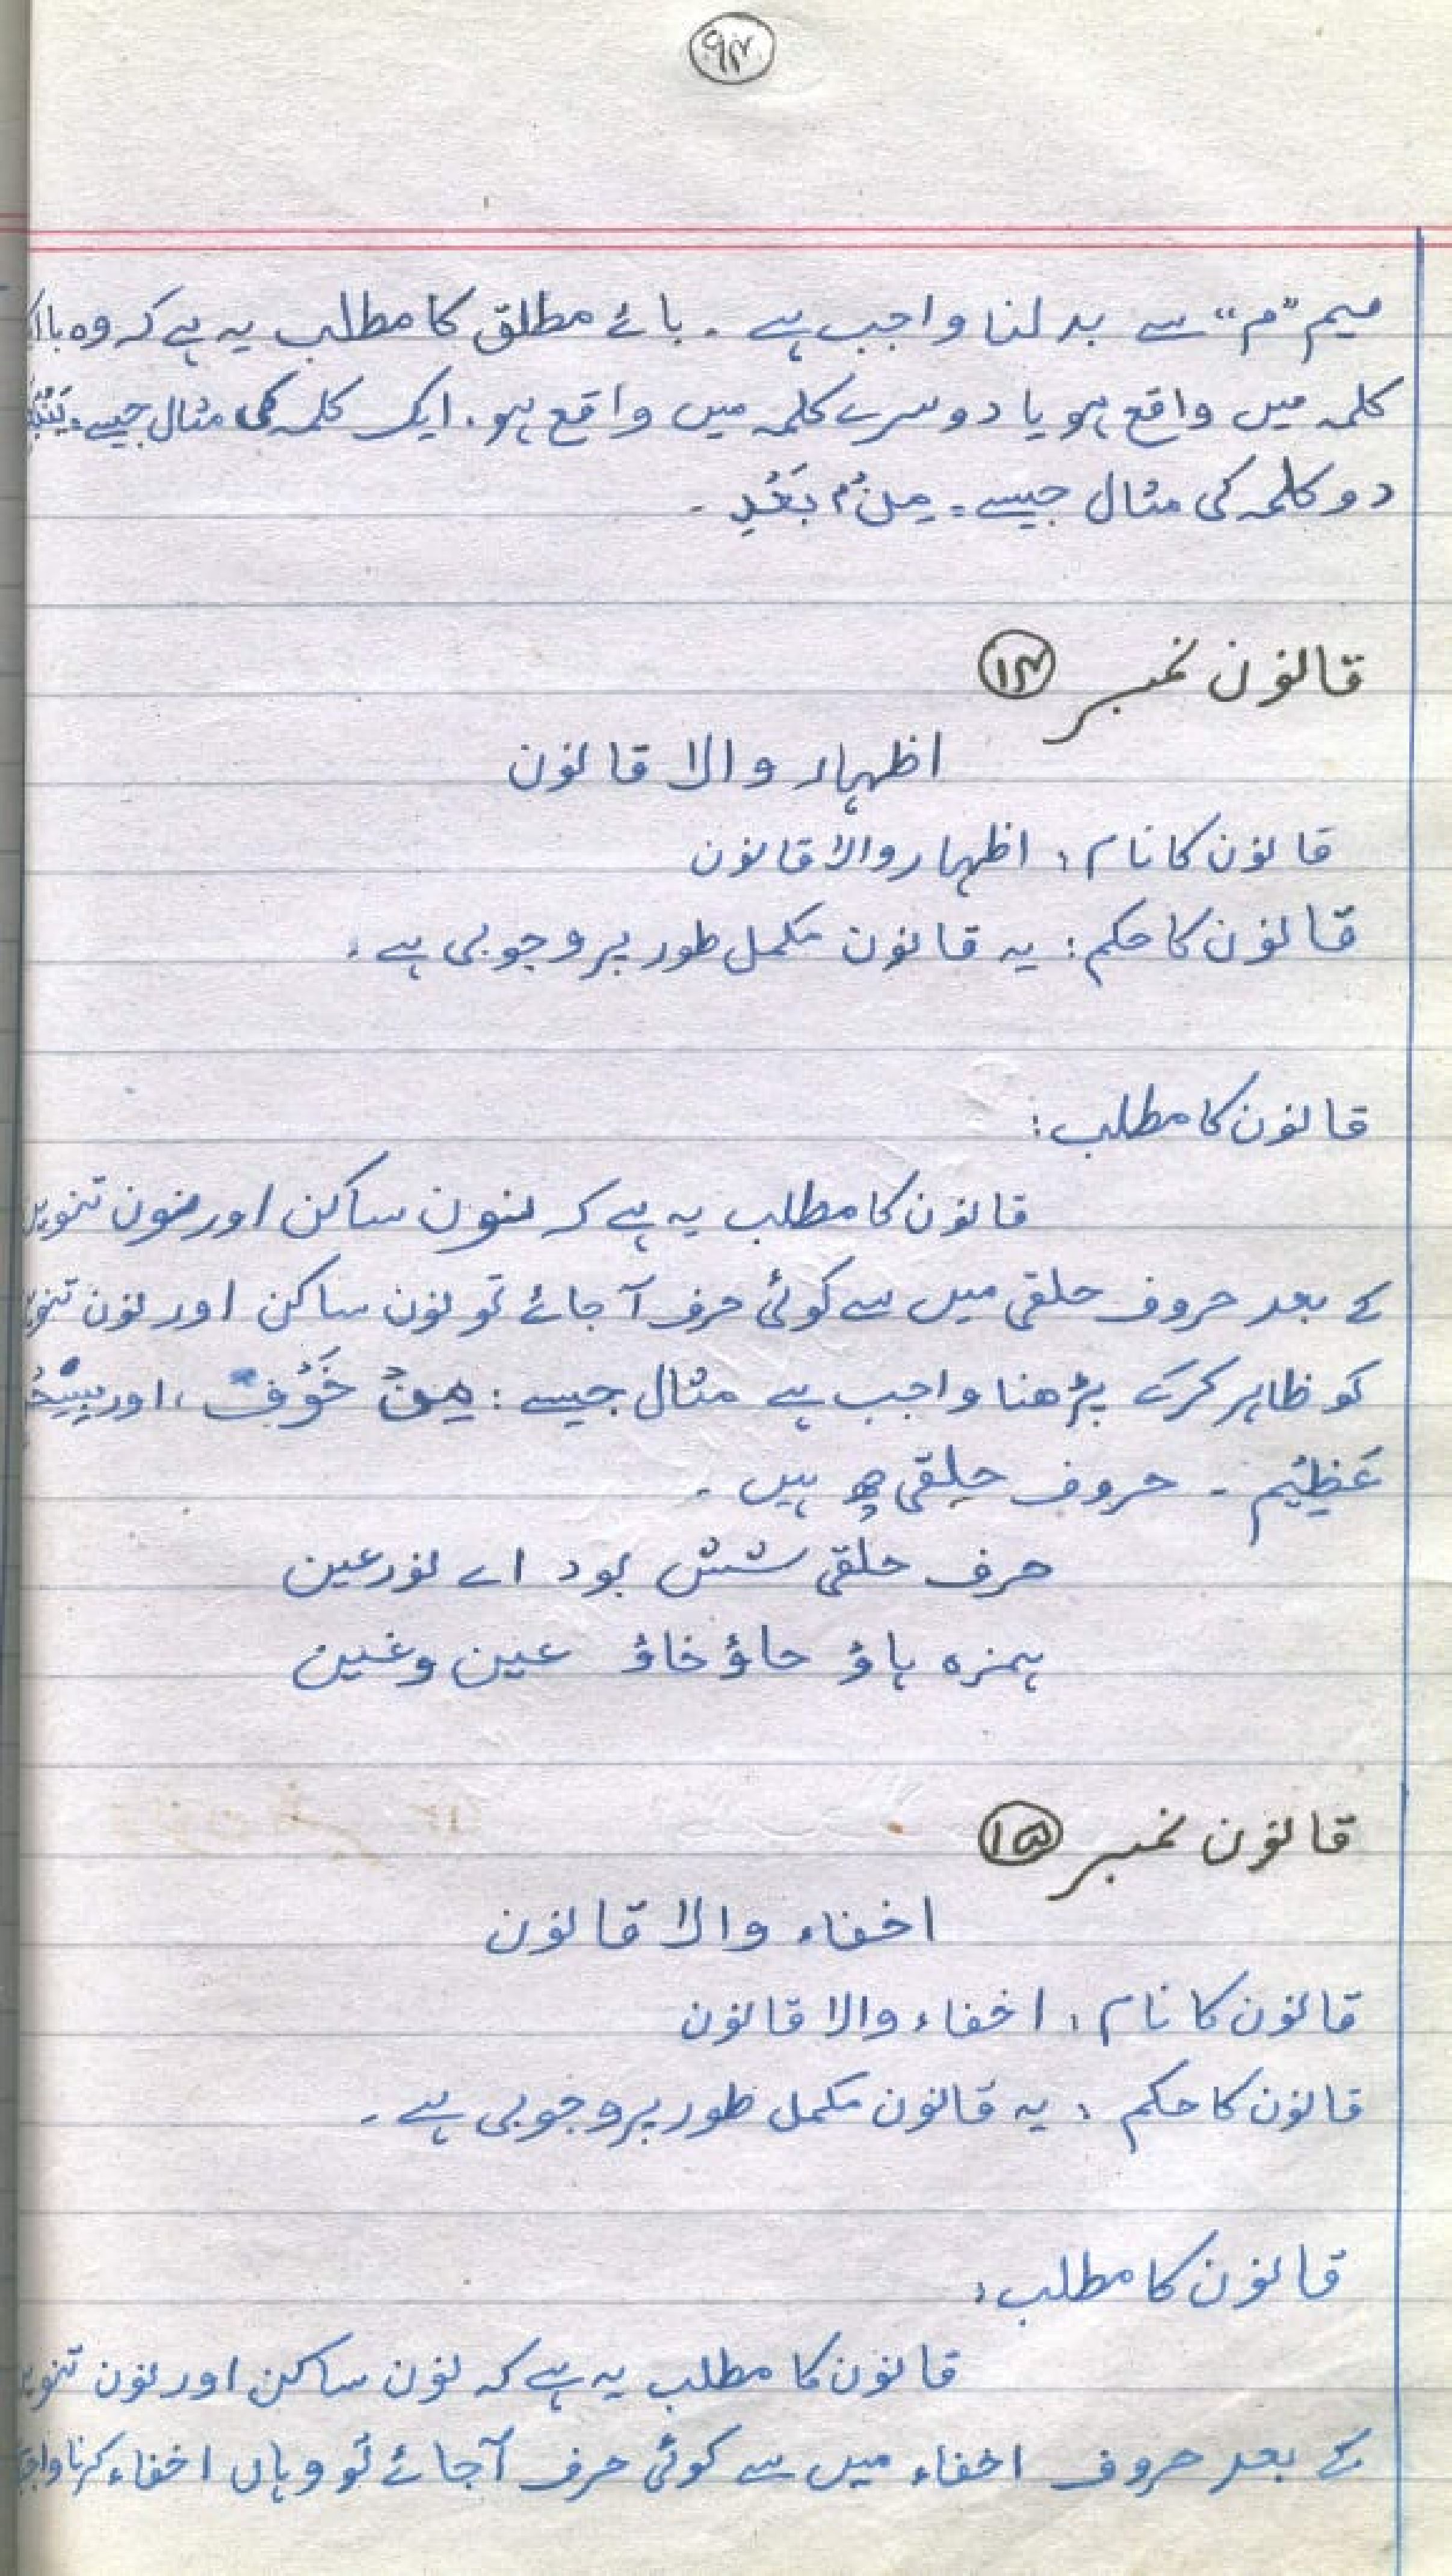 ۹۴
میم "م" سے بدلنا واجب ہے ۔ بائے مطلق کا مطلب یہ ہے کہ وہ با
کلمہ میں واقع ہو یا دوسرے کلمہ میں واقع ہو۔ ایک کلمہ کی مثال جیسے۔
دو کلمہ کی مثال جیسے۔ مِنْۢ بَعْدِ ۔
قانون نمبر ۱۴
اظہار والا قانون
قانون کا نام : اظہار والا قانون
قانون کا حکم : یہ قانون مکمل طور پر وجوبی ہے ۔
قانون کا مطلب :
قانون کا مطلب یہ ہے کہ نون ساکن اور نون تنوین
کے بعد حروف حلقی میں سے کوئی حرف آ جائے تو نون ساکن اور نون
کو ظاہر کرکے پڑھنا واجب ہے مثال جیسے : مِنْ خَوْفٍ ، اور
عَظِیْم ۔ حروف حلقی چھ ہیں ۔
حرف حلقی شش بود اے نور عین
ہمزہ ہاؤ حاؤ خاؤ عین و غین
قانون نمبر ۱۵
اخفاء والا قانون
قانون کا نام : اخفاء والا قانون
قانون کا حکم : یہ قانون مکمل طور پر وجوبی ہے ۔
قانون کا مطلب :
قانون کا مطلب یہ ہے کہ نون ساکن اور نون
کے بعد حروف اخفاء میں سے کوئی حرف آجائے تو وہاں اخفاء کرنا